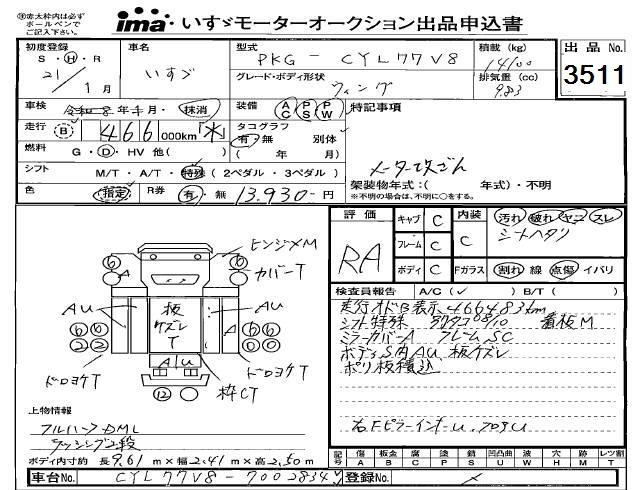 ※赤太枠内は必ずボールペンでご記入下さい。
ima いすゞモーターオークション出品申込書
初度登録 S・H・R 21/1月
車名 いすゞ
型式 PKG-CYL77V8
積載(kg) 14100
出品No. 3511
グレード・ボディ形状 ウィング
排気量(cc) 983
車検 令和8年 月・抹消
装備 AC PS PW
特記事項
走行 B 466,000km「*」
タコグラフ 有・無 別体 ( 年 月)
燃料 G・D・HV 他( )
メーター改ざん
シフト M/T・A/T・特殊 (2ペダル・3ペダル)
架装物年式:( 年式)・不明
※不明の場合は、不明に○をする。
色 指定 R券 有・無 13,930-円
評価 RA
キャブ C
フレーム C
ボディ C
内装 C
汚れ 破れ ヤニ スレ
シートヘタリ
Fガラス 割れ 線 点傷 イバリ
検査員報告 A/C(✓) B/T( )
走行オドB表示、466483km
シフト特殊 看板M
ミラーカバーA フレームSC
ボディS角AU、板ケズレ
ポリ板積込
ヒンジメM
カバーT
AU
板ケズレT
AU
A
66
22
00
00
ドロヨケT
AU
ドロヨケT
枠CT
12
上物情報
フルハーフDML
ラッシング2段
ボディ内寸約 長9.61m×幅2.41m×高2.50m
記号 傷A 板金B 腐C 塗P 錆S 凹凸曲U 波W 穴H 跡M レツ割T
車台No. CYL77V8-7002834
登録No. ×